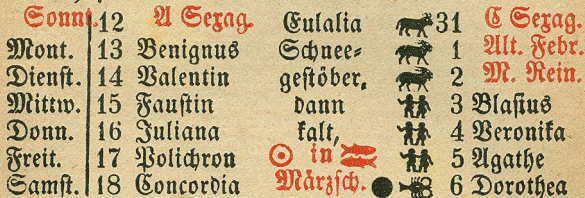 Sonnt. 12 A Sexag. Eulalia 31 C Sexag.
Mont. 13 Benignus Schnee= 1 Alt. Febr.
Dienst. 14 Valentin gestöber, 2 M. Rein.
Mittw. 15 Faustin dann 3 Blasius
Donn. 16 Juliana kalt, 4 Veronika
Freit. 17 Polichron ☉ in ♓ 5 Agathe
Samst. 18 Concordia Märzsch. ● 6 Dorothea